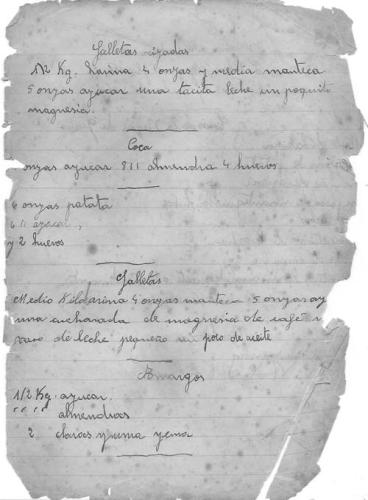 Galletas rizadas
1/2 Kg. harina 4 onzas y media manteca
5 onzas azucar una tacita leche un poquito
magnesia.
Coca
onzas azucar 8 11 almendra 4 huevos
6 onzas patata
6 11 azucar,
y 2 huevos
Galletas
Medio Kilo harina 4 onzas mante 5 onzas az
una cucharada de magnesia de café 1
vaso de leche pequeño un poco de aceite
Amargos
1/2 Kg. azucar.
" " " almendras
2 claras y una yema